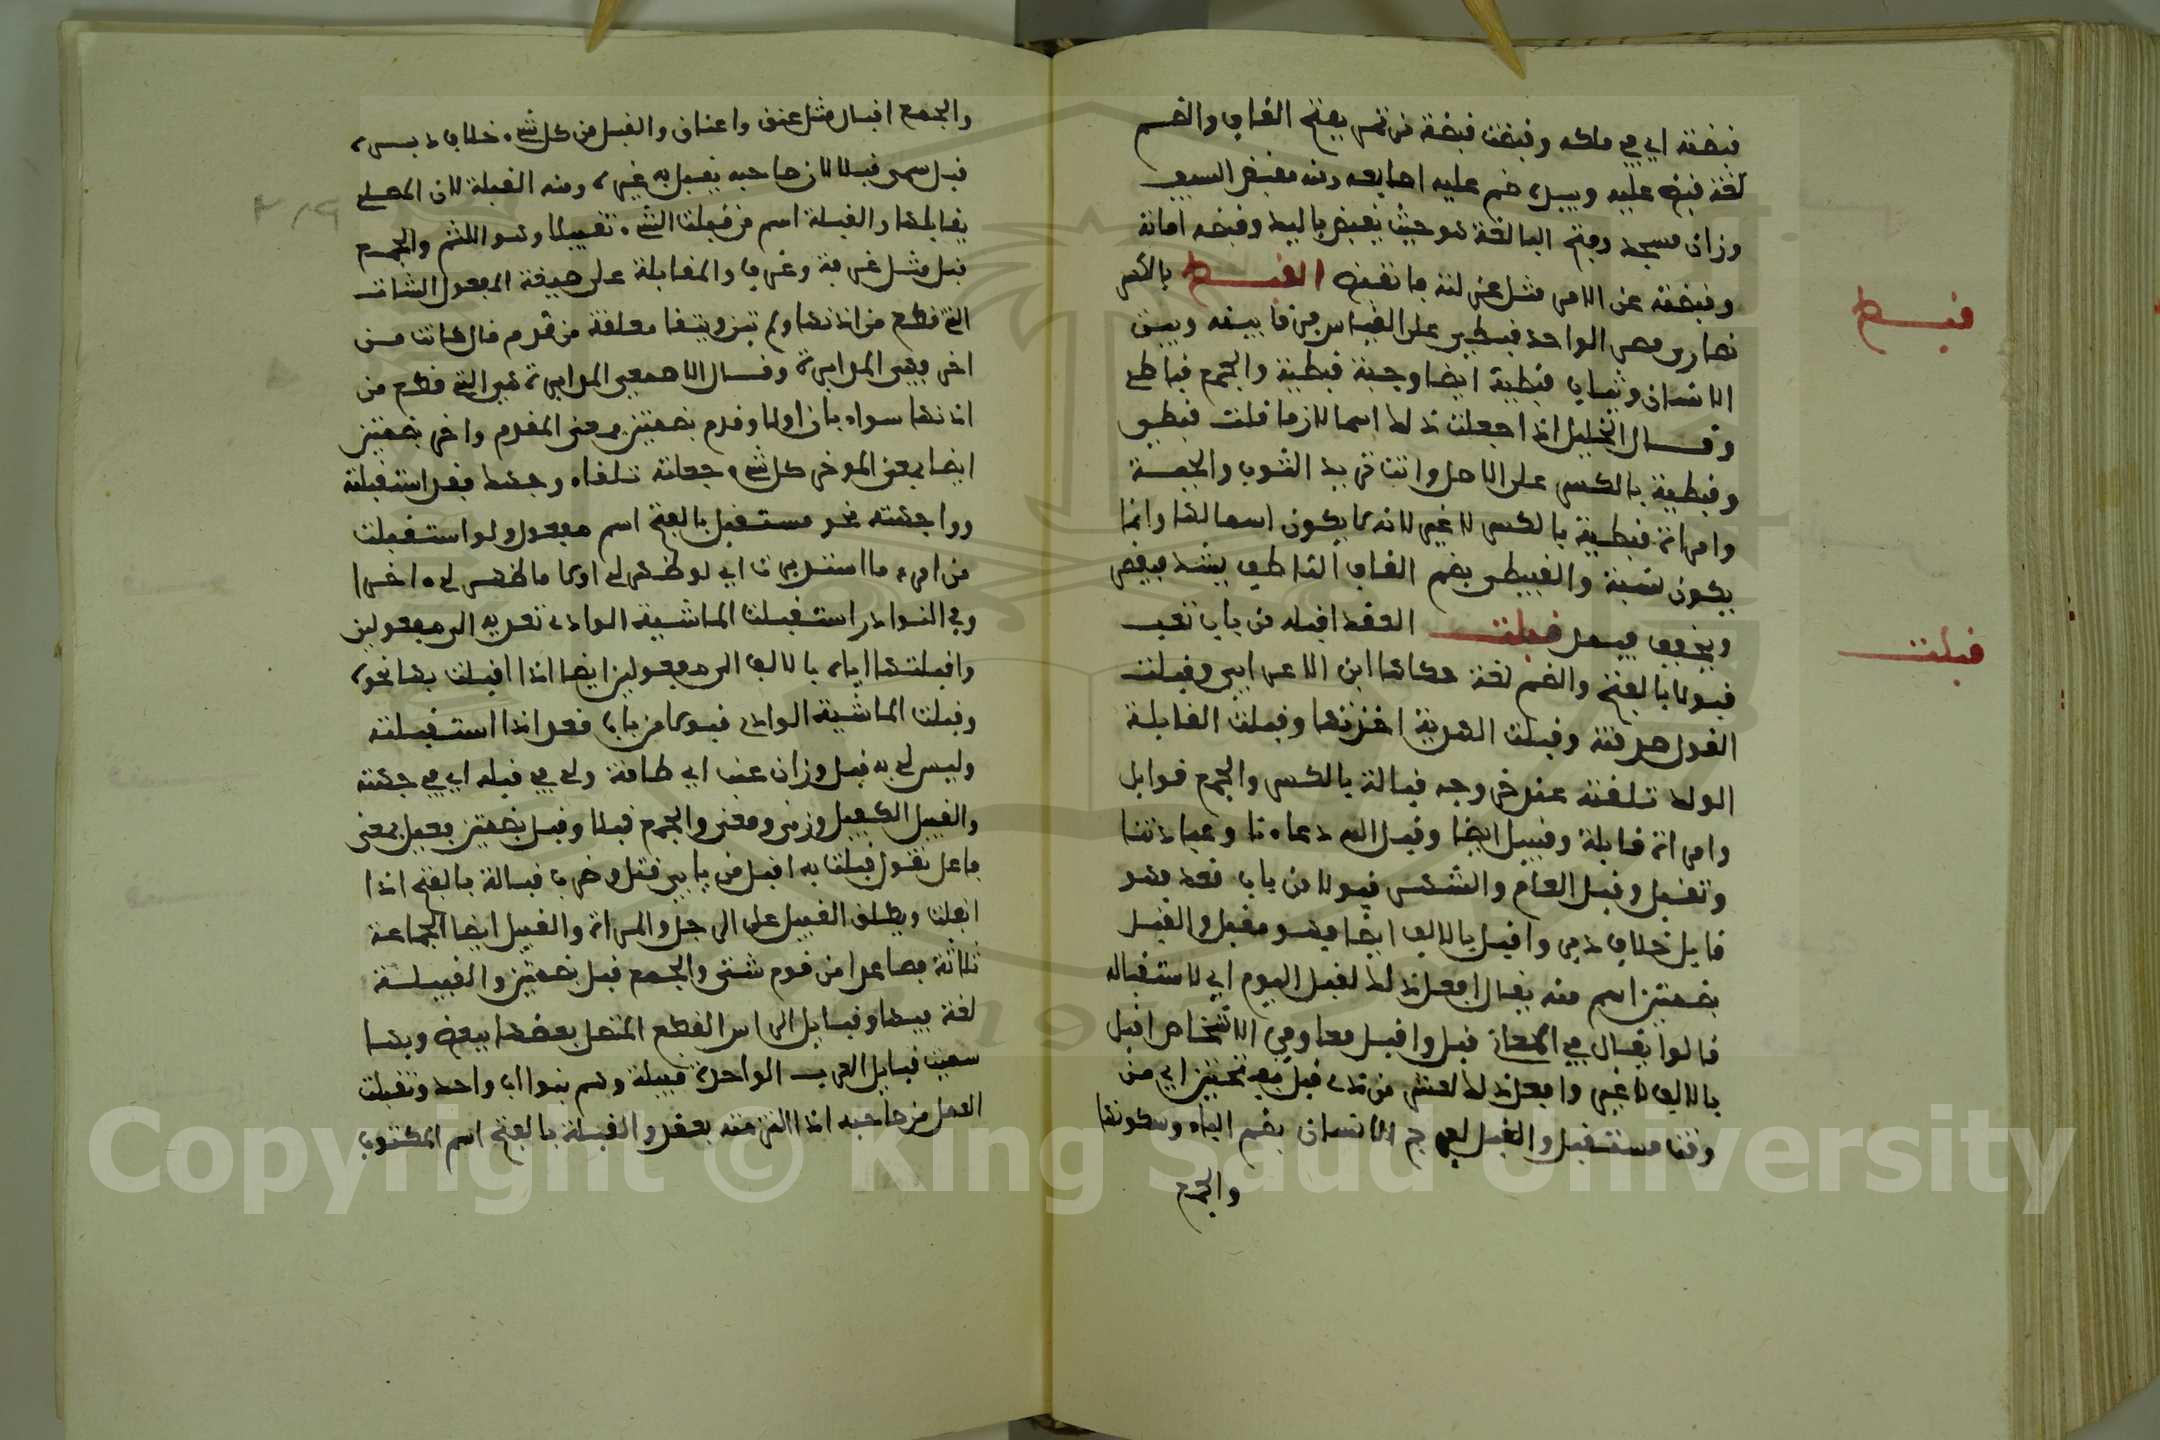 قبضته اي في ملكه وقبضت قبضة من تمر بفتح القاف والضم
لغة قبض عليه وبيده ضم عليه اصابعه ومنه مقبض السيف
وزان مسجد وفتح البا لغة وهو حيث يقبض باليد وقبضه امانة
وقبضته عن الامر مثل عزلته فانقبض القبط بالكسر
نصارى مصر الواحد قبطي على القياس فرقا بينه وبين
الانسان وثياب قبطية ايضا وجبة قبطية والجمع قباطي
وقال الخليل اذا جعلت ذلك اسما لازما قلت قبطي
وقبطية بالكسر على الاصل وانت تريد الثوب والجبة
وامراة قبطية بالكسر لا غير لانه لا يكون اسما لها وانما
يكون نسبة والقبيطى بضم القاف الناطف يشد فيقصر
ويخفف فيمد قبلت العقد اقبله من باب تعب
قبولا بالفتح والضم لغة حكاها ابن الاعرابي وقبلت
القول صدقته وقبلت الهدية اخذتها وقبلت القابلة
الولد تلقته عند خروجه قبالة بالكسر والجمع قوابل
وامراة قابلة وقبيل ايضا وقبل الله دعاءنا وعبادتنا
وتقبل وقبل العام والشهر قبولا من باب قعد فهو
قابل خلاف دبر واقبل بالالف ايضا فهو مقبل والقبل
بضمتين اسم منه يقال افعل ذلك لقبل اليوم اي لاستقباله
قالوا يقال في المعاني قبل واقبل معا وفي الاشخاص اقبل
بالالف لا غير وافعل ذلك لعشر من ذي قبل بفتحتين اي من
وقت مستقبل والقبل لفرج الانسان بضم الباء وسكونها
والجمع
قبط
قبلت
والجمع اقبال مثل عنق واعناق والقبل من كل شيء خلاف دبره
قبل سمي قبلا لان صاحبه يقابل به غيره ومنه القبلة لان المصلي
يقابلها والقبلة اسم من قبلت الشيء تقبيلا وهو اللثم والجمع
قبل مثل غرفة وغرف والمقابلة على صيغة المفعول الشاة
التي قطع من اذنها ولم تبن ويبقا معلقة من قدم فان كانت من
اخر فهي المدابرة وقال الاصمعي المدابرة هي التي قطع من
اذنها سواء بان اولا وقدم بضمتين بمعنى المقدم واخر بضمتين
ايضا بمعنى المؤخر كل شيء جعلته تلقاء وجهك فقد استقبلته
وواجهته نحو مستقبل بالفتح اسم مفعول ولو استقبلت
من امري ما استدبرت اي لو ظهر لي اولا ما ظهر لي اخرا
وفي النوادر استقبلت الماشية الوادي تعديه الى مفعولين
واقبلتها اياه بالالف الى مفعولين ايضا اذا اقبلت بها نحوه
وقبلت الماشية الوادي قبولا من باب قعد اذا استقبلته
وليس لي به قبل وزان عنب اي طاقة ولي في قبله اي في جهته
والقبيل الكفيل وزنا ومعنى والجمع قبلا وقبل بضمتين فعيل بمعنى
فاعل تقول قبلت به اقبل من بابي قتل وضرب قبالة بالفتح اذا
كفلت ويطلق القبيل على الرجل والمراة والقبيل ايضا الجماعة
ثلاثة فصاعدا من قوم شتى والجمع قبل بضمتين والقبيلة
لغة فيها وقبايل الراس القطع المتصل بعضها ببعض وبها
سميت قبايل العرب الواحدة قبيلة وهم بنوا اب واحد وتقبلت
العمل من صاحبه اذا التزمته بعقد والقبلة بالفتح اسم المكتوب
Copyright © King Saud University